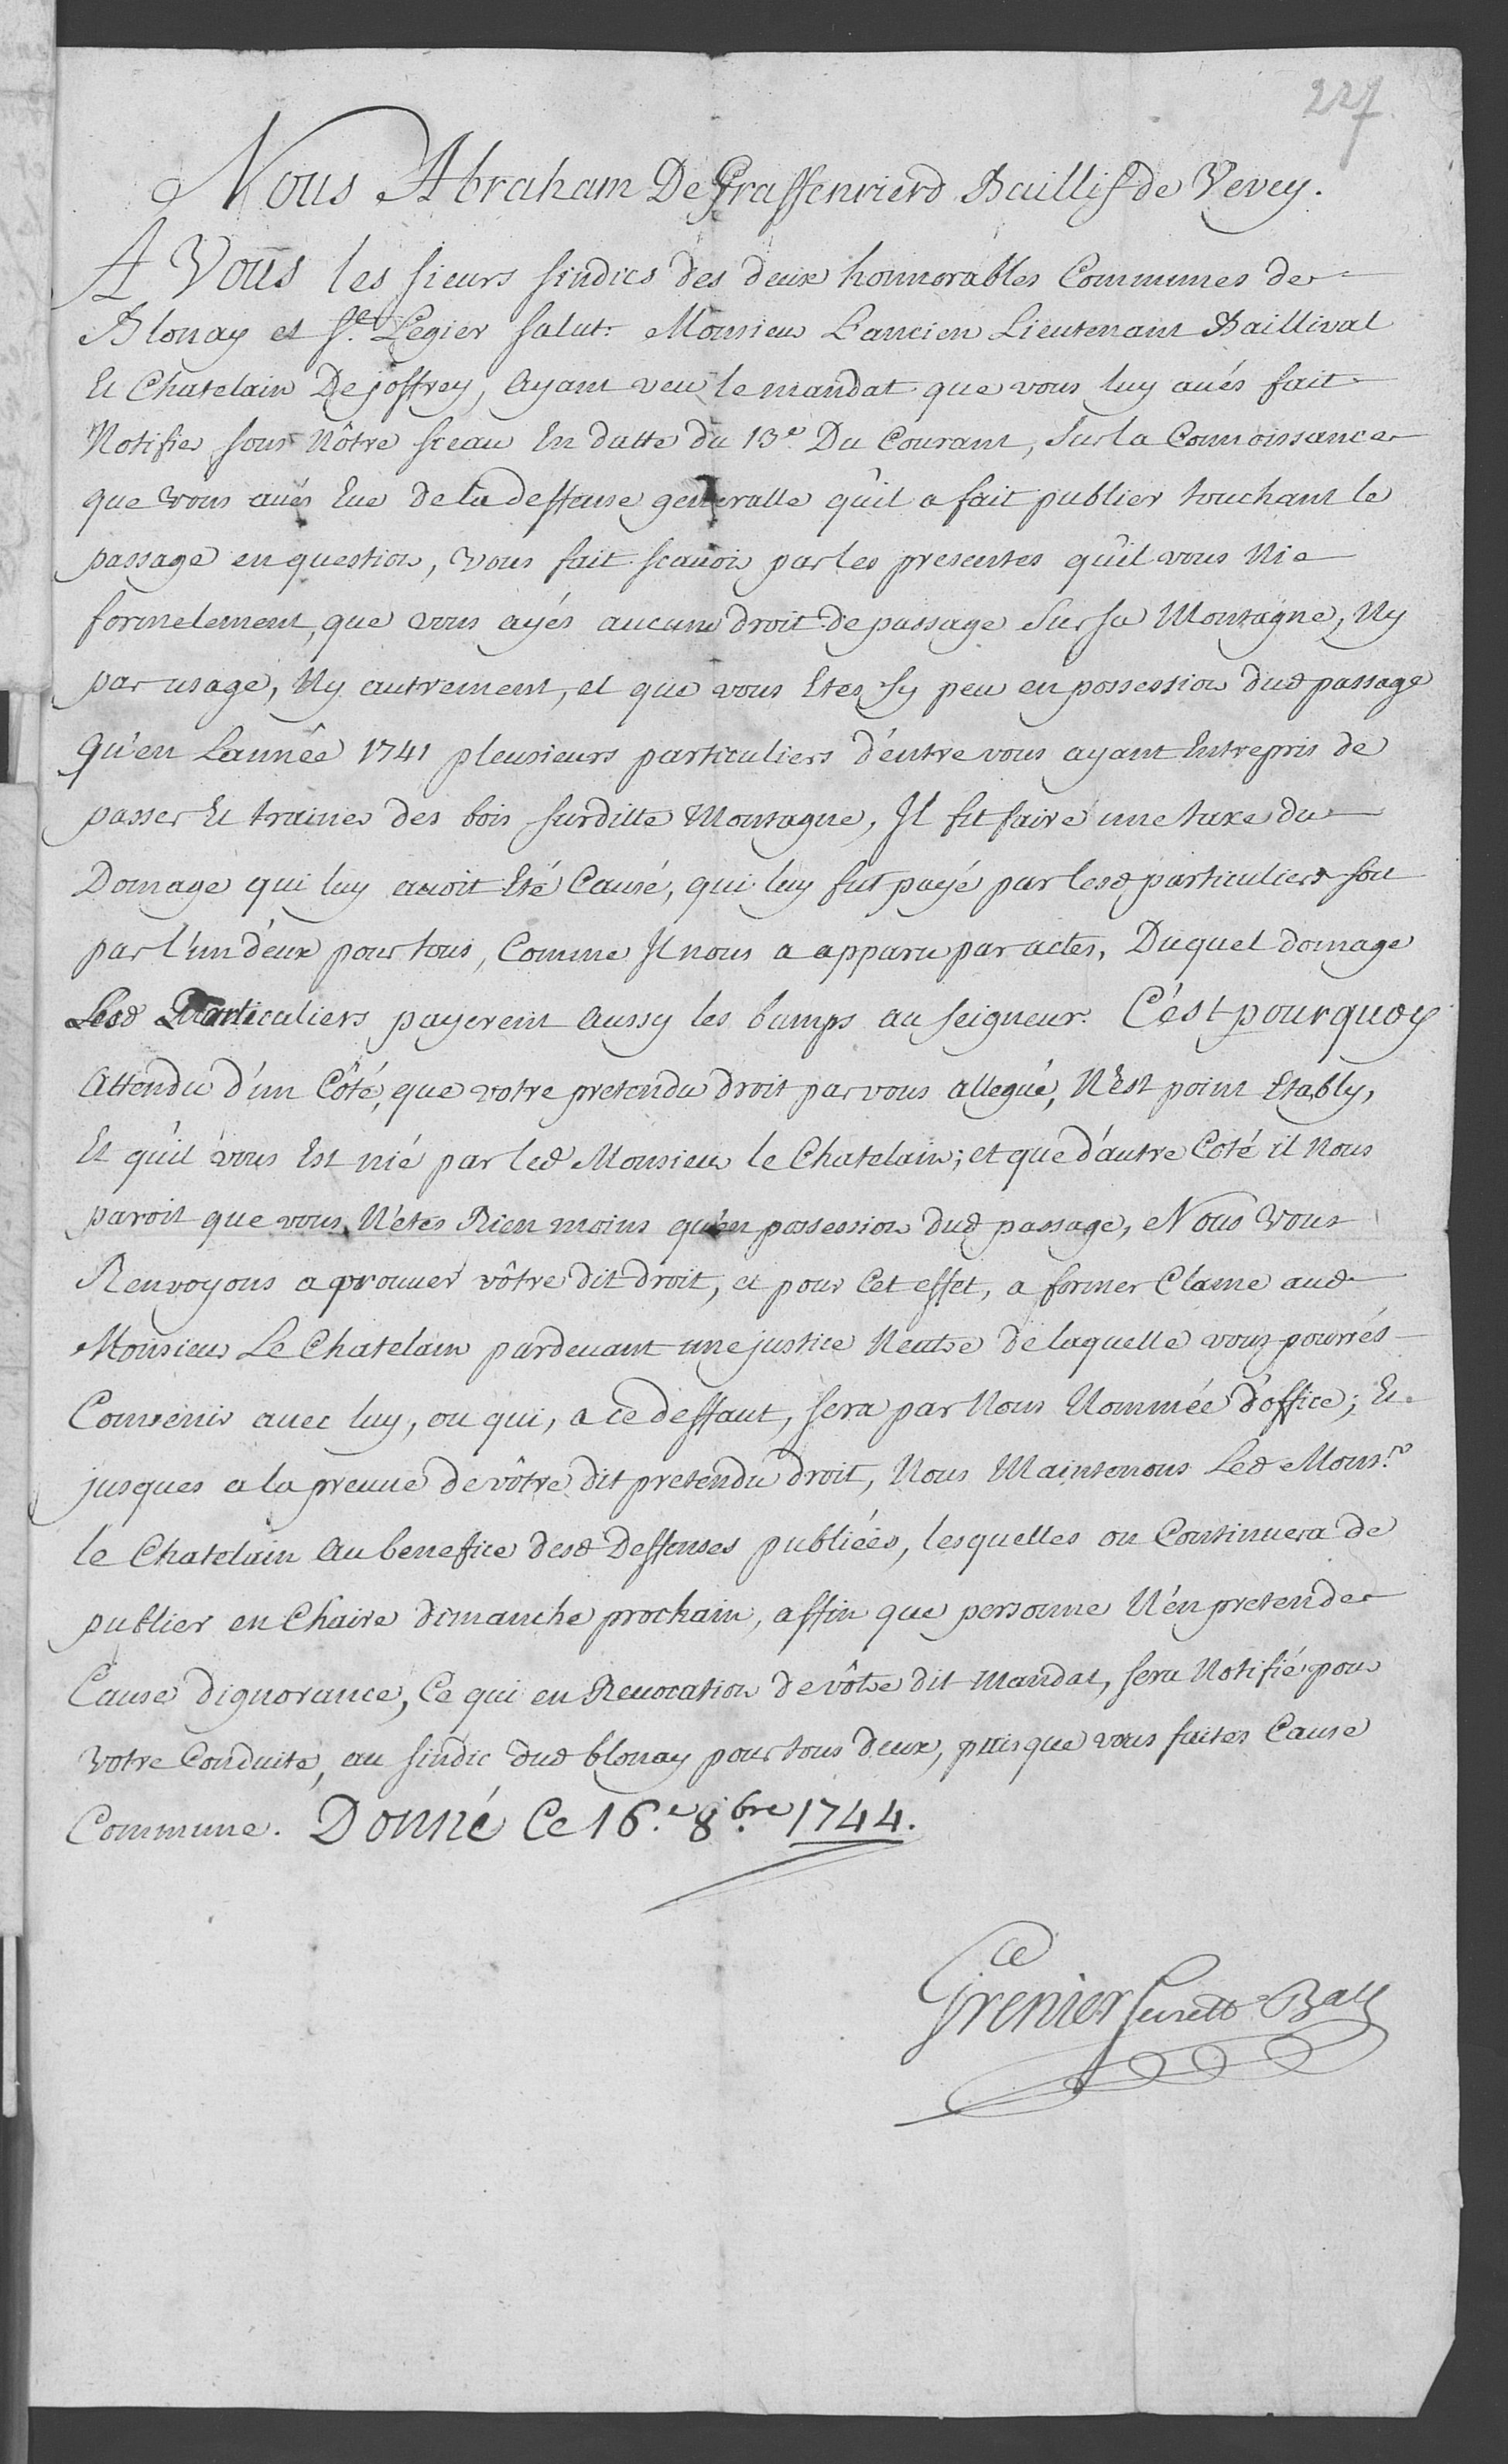 227
Nous Abraham De Graffenrierd Baillif de Vevey.
A Vous les sieurs sindics des deux honnorables Communes de
Blonay et St. Legier salut. Monsieur L'ancien Lieutenant Baillival
Et Chatelain De joffrey, Ayant veu le mandat que vous luy avés fait
Notifier sous Nôtre sceau En datte du 13e. Du Courant, Sur la Connoissance
que vous avés Eue de la deffense generalle qu'il a fait publier touchant le
passage en question, vous fait scavoir par les presentes qu'il vous Nie
formelement, que vous ayés aucun droit de passage Sur sa Montagne, Ny
par usage, Ny autrement, et que vous Etes sy peu en possession dud passage
Qu'en L'année 1741 pleusieurs particuliers d'entre vous ayant Entrepris de
passer Et trainer des bois surditte Montagne, Il fit faire une taxe du
Domage qui luy avoit Eté Causé, qui luy fut payé par lesd particuliers sou
par l'un d'eux pour tous, Comme Il nous a apparu par actes, Duquel domage
Lesd Particuliers payerent Aussy les bamps au seigneur. C'est pourquoy
Attendu d'un Côté, que votre pretendu droit par vous allegué, N'Est point Etably,
Et qu'il vous Est nié par led Monsieur le Chatelain; et que d'autre Coté il Nous
paroit que vous N'etes Rien moins qu'en possession dud passage, Nous Vous
Renvoyons a prouver vôtre dit droit, et pour Cet effet, a former Clame aud
Monsieur Le Chatelain pardevant une justice Neutre de laquelle vous pourrés
Convenir avec luy, ou qui, a ce deffaut, sera par Nous Nommée d'office; Et
jusques a la preuve de vôtre dit pretendu droit, Nous Maintenons Led Monsr.
le Chatelain Au benefice desd Deffenses publiées, lesquelles on Continuera de
publier en Chaire dimanche prochain, affin que personne N'en pretende
Cause d'ignorance, Ce qui en Revocation de vôtre dit Mandat, sera Notifié pour
Votre Conduite, au sindic dud blonay pour tous deux, puisque vous faites Cause
Commune. Donné Ce 16.e 8.bre 1744.
Grenier Secrett Ball